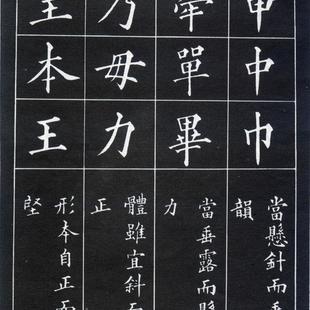 申中巾
單畢
乃毋力
本王
當懸針而垂
韻
當垂露而懸
力
體雖宜斜而
正
形本自正而
堅